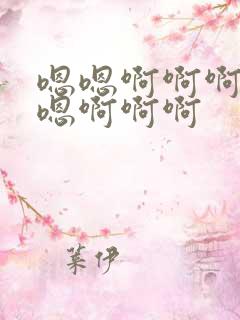 嗯嗯啊啊啊
嗯啊啊啊
葉伊